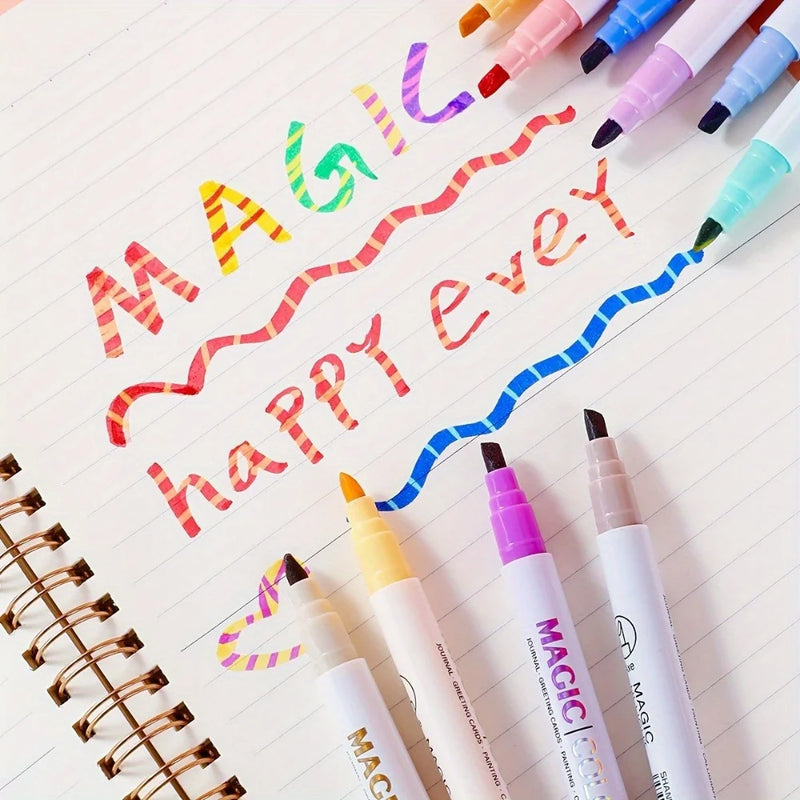 MAGIC
happy evey
MAGIC
JOURNAL · GREETING CARDS · PAINTING ·
MAGIC
JOURNAL · GREETING CARDS · PAINTING ·
MAGIC